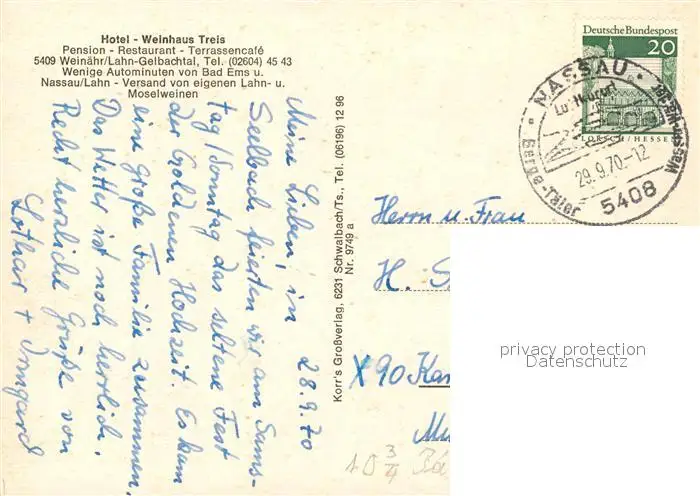 Hotel - Weinhaus Treis
Pension - Restaurant - Terrassencafé
5409 Weinähr/Lahn-Gelbachtal, Tel. (02604) 45 43
Wenige Autominuten von Bad Ems u.
Nassau/Lahn - Versand von eigenen Lahn- u.
Moselweinen
28.9.70
Meine Lieben, in
Seelbach feierten wir am Sams-
tag/Sonntag das seltene Fest
der Goldenen Hochzeit. Es kam
eine große Familie zusammen,
Das Wetter ist noch herrlich.
Recht herzliche Grüße von
Lothar + Irmgard
Korr's Großverlag, 6231 Schwalbach/Ts., Tel. (06196) 12 96
Nr. 9749 a
Deutsche Bundespost
20
LORSCH/HESSEN
NASSAU
Luftkurort
29.9.70-12
5408
Berge-Täler
Herrn u. Frau
H. S
X90 Kar
privacy protection
Datenschutz